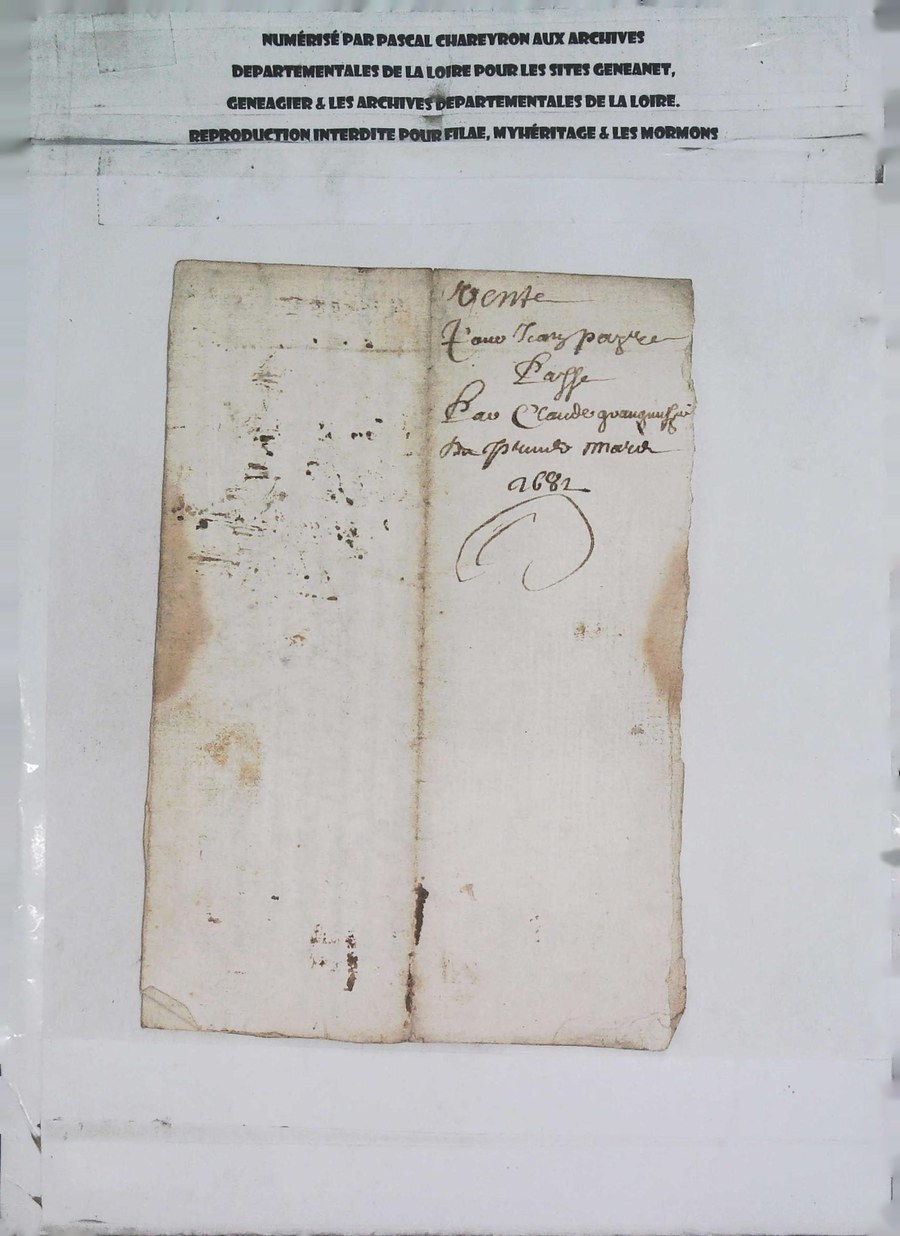 NUMÉRISÉ PAR PASCAL CHAREYRON AUX ARCHIVES
DEPARTEMENTALES DE LA LOIRE POUR LES SITES GENEANET,
GENEAGIER & LES ARCHIVES DEPARTEMENTALES DE LA LOIRE.
REPRODUCTION INTERDITE POUR FILAE, MYHÉRITAGE & LES MORMONS
Vente
Pour Jean payre
Passe
Par Claude
Du mars
1682